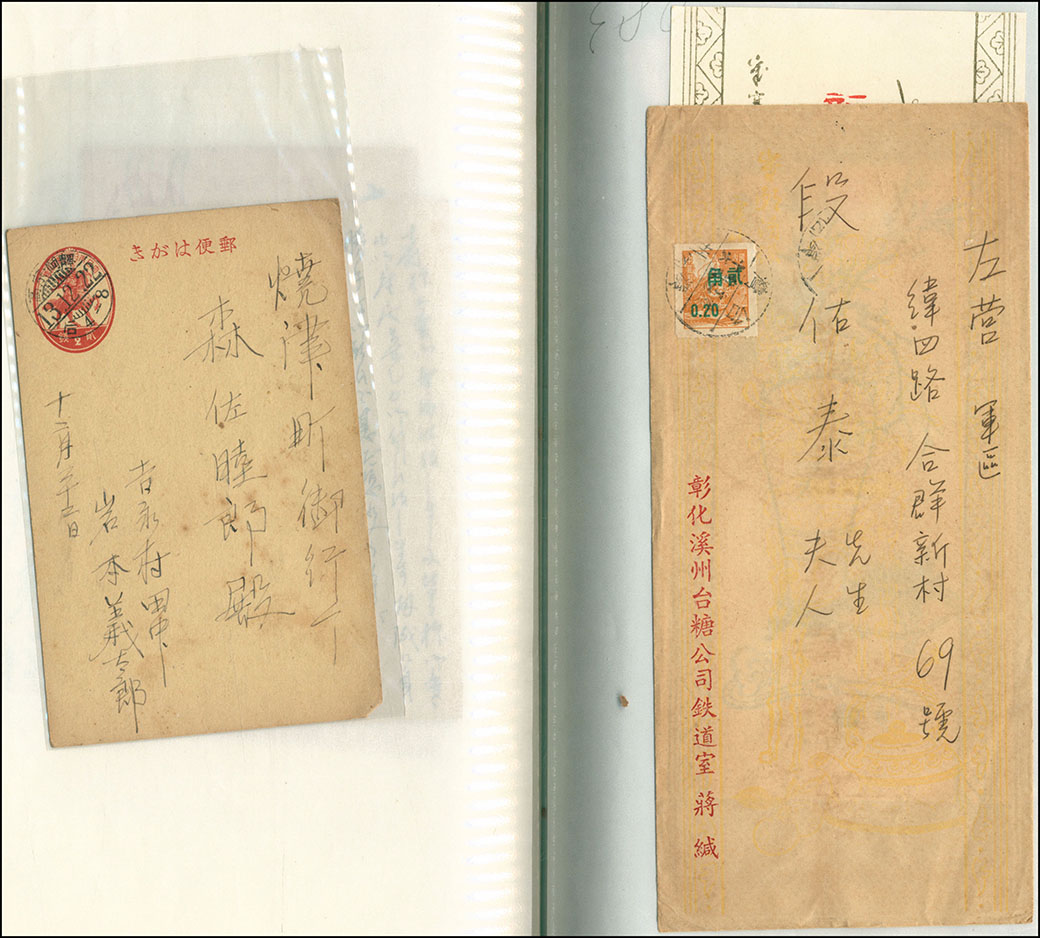 郵便はがき
13.12.22
燒津町御行下
森佐睦郎殿
吉永村
岩本義太郎
十二月二十二日
左營 軍區
緯四路 合群新村 69號
段佑泰 先生
夫人
貳角
0.20
彰化溪州台糖公司鉄道室 蔣 緘